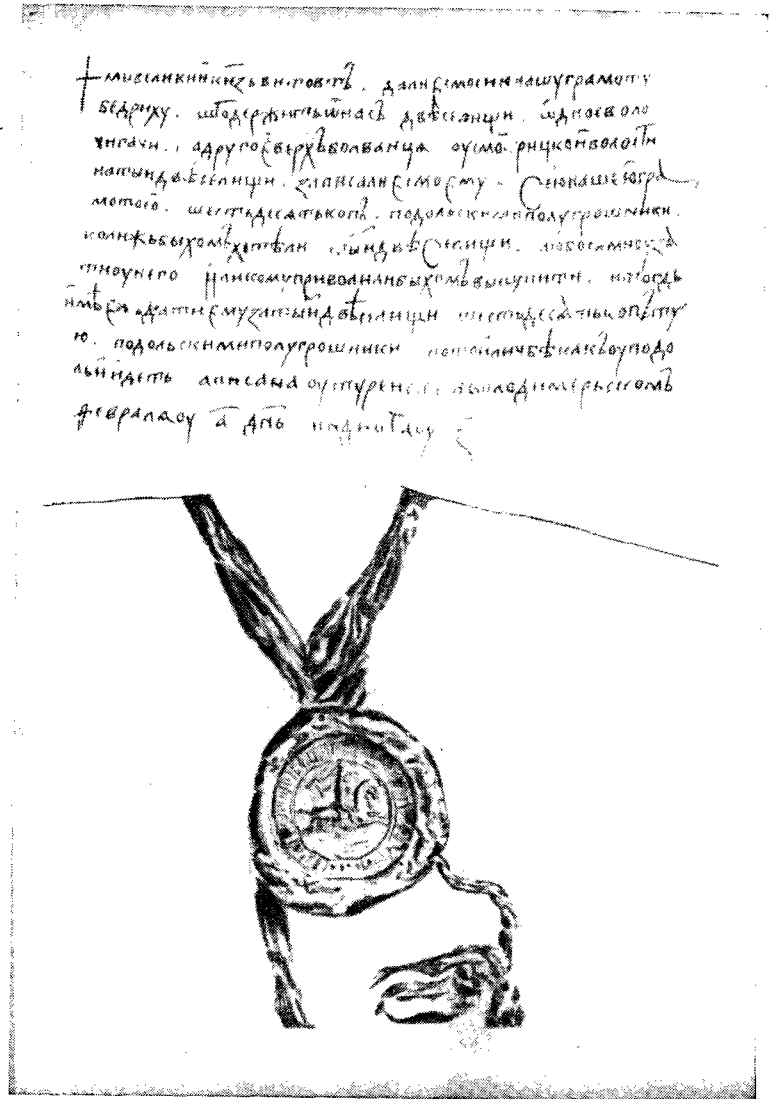 † ми великии кнѧзь витовтъ . дали есмо сию нашу грамоту
бедриху . што держить ѿ насъ двѣ селищи . ѡдно еволо
, а другоє верхъ болванца оу смотрицкои волости
на тыи двѣ селищи . записали єсмо єму . сию нашею гра
мотою . шестьдесѧтъ копъ . подольскими полугрошники .
коли жь быхомъ хотѣли тыи двѣ селищи . любо сами оузѧ
ти оу него или кому приволили быхомъ выкупити . на тогды
имѣєм дати єму за тыи двѣ селищи шестьдесѧтъ копъ ту
ю . подольскими полугрошники по тои личбѣ какъ оу подо
льи идеть а писана оу турєискъ володимерьскомъ
февралѧ оу а҃ днь индикта оу